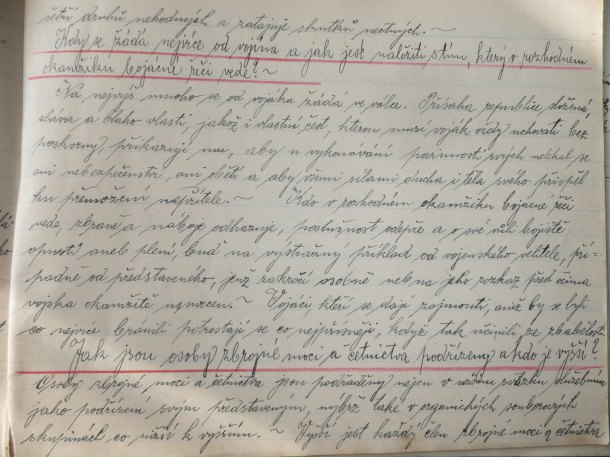 šetří druhů nehodných a zatajuje skutků nectných. ~
Kdy se žádá nejvíce od vojína a jak jest naložiti s tím, který v rozhodném
okamžiku bojácné řeči vede? ~
Na nejvýš mnoho se od vojáka žádá ve válce. Přísaha republice složená,
sláva a blaho vlasti, jakož i vlastní čest, kterou musí voják vždy uchovati bez
poskvrny, přikazují mu, aby u vykonávání povinností svých nelekal se
ni nebezpečenství, ani obětí a aby všemi silami ducha i těla svého přispěl
ku přemožení nepřítele. ~ Kdo v rozhodném okamžiku bojácné řeči
vede, zbraně a náboje odhazuje, poslušnost odepře a o své vůli bojiště
opustí aneb plení, buď na výstražný příklad od vojenského velitele, pří-
padně od představeného, jenž zakročí osobně neb na jeho rozkaz před očima
vojska okamžitě usmrcen. ~ Vojáci kteří se dají zajmouti, aniž by se byli
co nejvíce bránili potrestají se co nejpřísněji, když tak učinili ze zbabělosti.
Jak jsou osoby zbrojné moci a četnictva podřízeny a kdo je vyšší?
Osoby zbrojné moci a četnictva jsou podřaděny nejen v užším svazku služebním
jako podřízení svým představeným, nýbrž také v organických souborových
skupinách co nižší k vyšším. ~ Vyšší jest každý člen zbrojné moci a četnictva